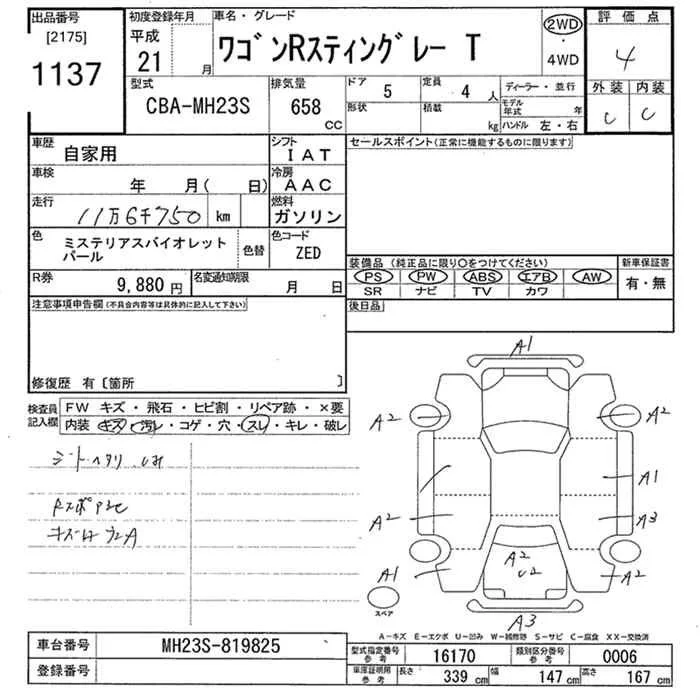 出品番号 初度登録年月 車名・グレード 2WD 評価点
[2175] 平成 ワゴンRスティングレー T ・ 4
1137 21 月 4WD
型式 排気量 ドア 5 定員 4 人 ディーラー・並行 外装 内装
CBA-MH23S 658 CC 形状 積載 kg モデル年式 年 C C
ハンドル 左・右
車歴 自家用 シフト IAT セールスポイント(正常に機能するものに限ります)
車検 年 月( 日) 冷房 AAC
走行 11万6千750 km 燃料 ガソリン
色 ミステリアスバイオレット 色替 色コード ZED
パール
装備品 (純正品に限り○をつけてください) 新車保証書
R券 9,880 円 名変通知期限 月 日 PS PW ABS エアB AW 有・無
SR ナビ TV カワ
注意事項申告欄(不具合内容等は具体的に記入して下さい) 後日品
修復歴 有〔箇所 〕
検査員 FW キズ・飛石・ヒビ割・リペア跡・×要
記入欄 内装 キズ・汚レ・コゲ・穴・スレ・キレ・破レ
シートヘタリ
Rスポ
A1
A2 A2
A1
A2 A3
A2
U2
A1 A2
スペア
A3
A-キズ E-エクボ U-凹み W-補修跡 S-サビ C-腐食 XX-交換済
車台番号 MH23S-819825 型式指定番号 参考 16170 類別区分番号 参考 0006
登録番号 車庫証明用 参考 長さ 339 cm 幅 147 cm 高さ 167 cm